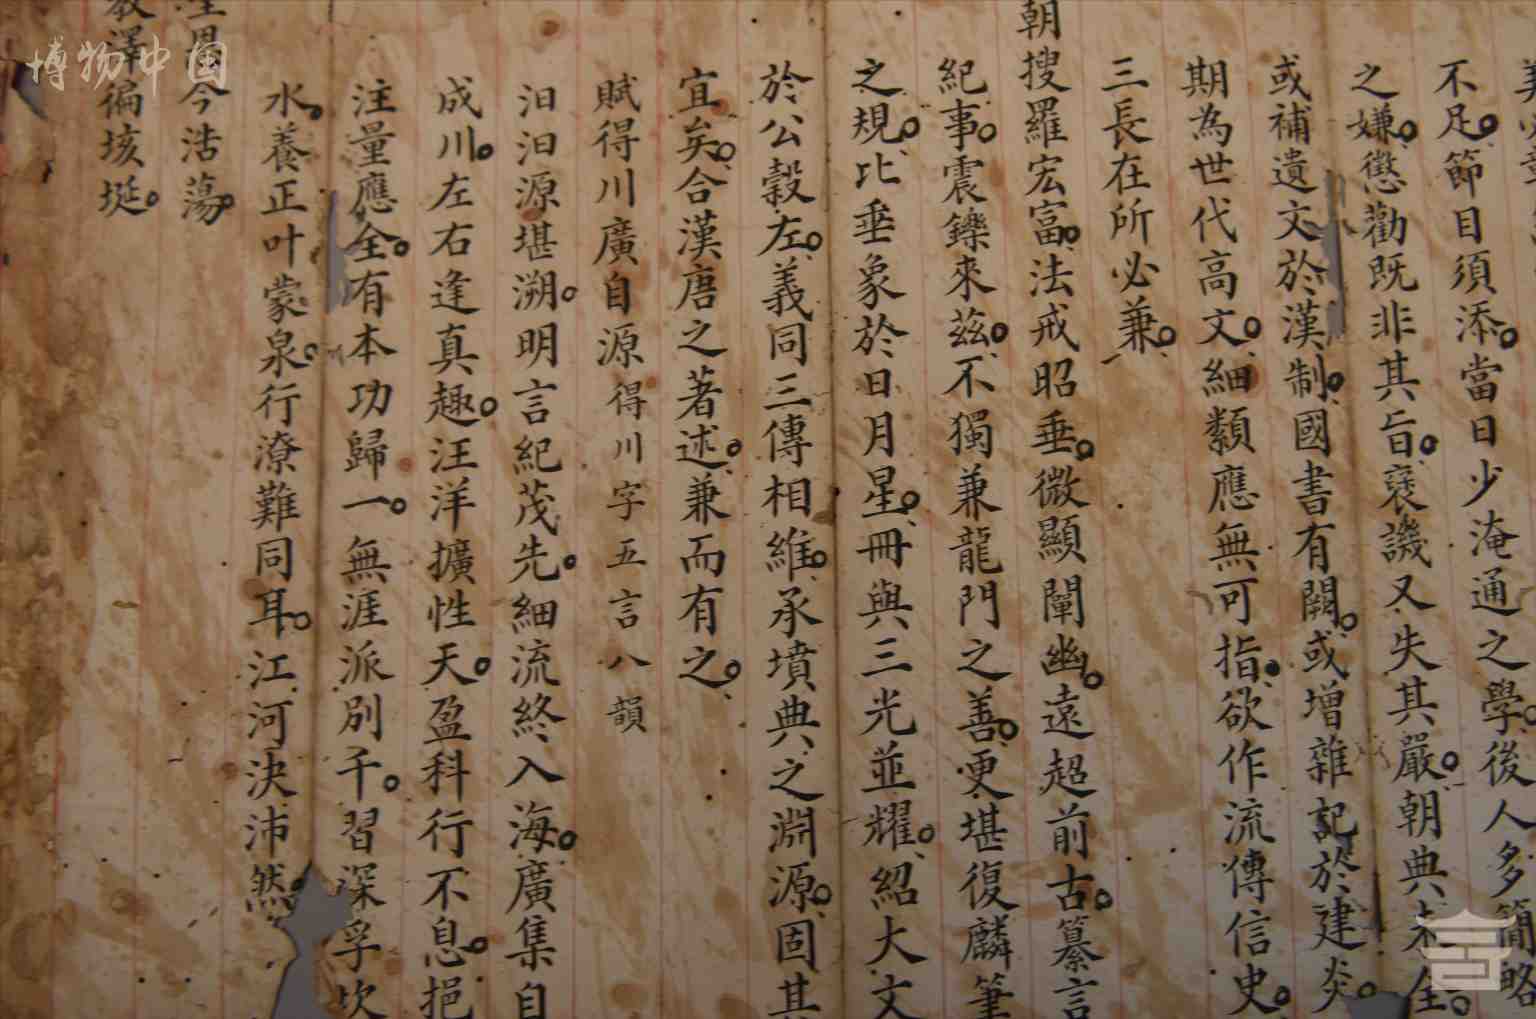 不足節目須添當日少淹通之學後人多簡略
之嫌懲勸既非其旨襃譏又失其嚴朝典未全
或補遺文於漢制國書有闕或增雜記於建炎
期為世代高文細纇應無可指欲作流傳信史
三長在所必兼
朝搜羅宏富法戒昭垂微顯闡幽遠超前古纂言
紀事震鑠來茲不獨兼龍門之善更堪復麟筆
之規比垂象於日月星冊與三光並耀紹大文
於公穀左義同三傳相維承墳典之淵源固其
宜矣合漢唐之著述兼而有之
賦得川廣自源得川字五言八韻
汩汩源堪溯明言紀茂先細流終入海廣集自
成川左右逢真趣汪洋擴性天盈科行不息挹
注量應全有本功歸一無涯派別千習深孚坎
水養正叶蒙泉行潦難同耳江河決沛然
今浩蕩
澤徧垓埏
博物中国